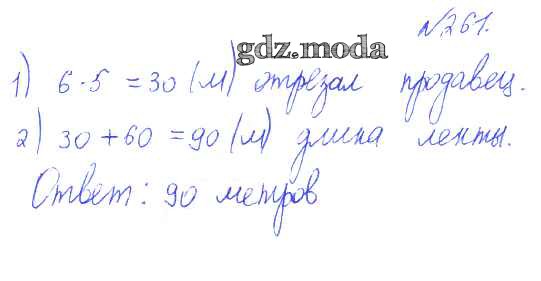 №261.
gdz.moda
1) 6·5 = 30 (м) отрезал продавец.
2) 30 + 60 = 90 (м) длина ленты.
Ответ: 90 метров